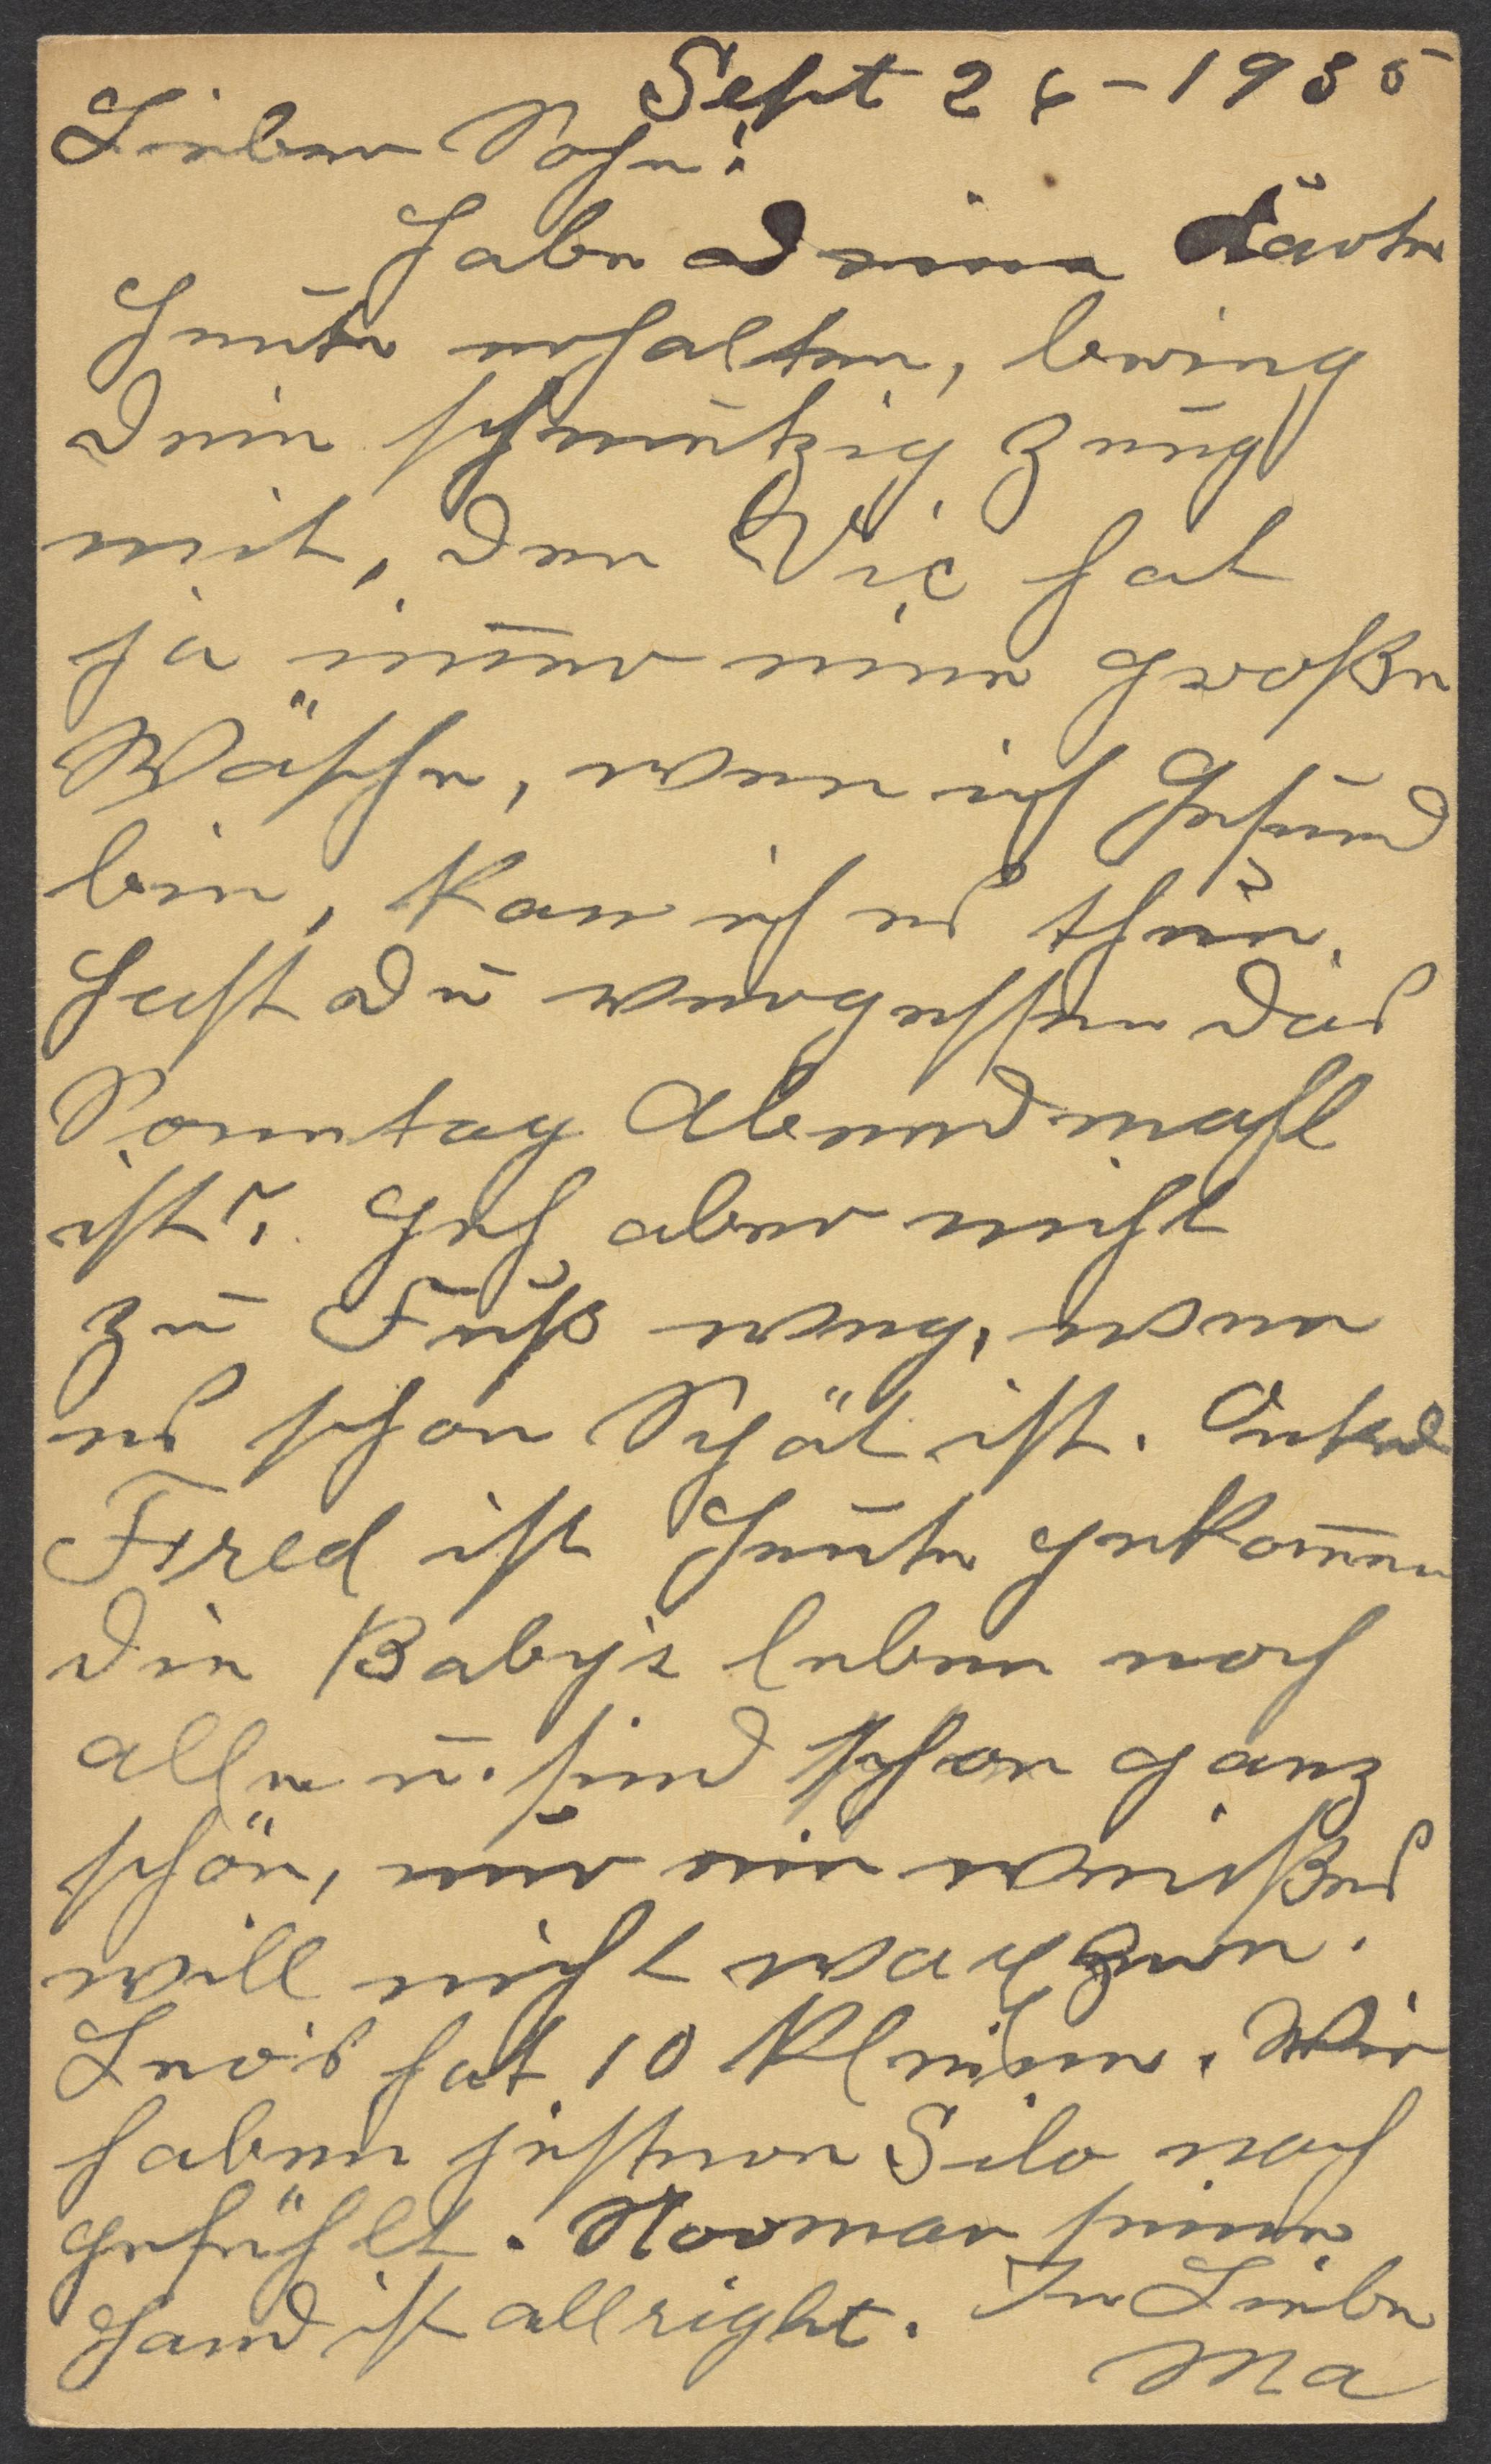 Sept 26-1935
Lieber Sohn!
Habe Deine Karte
Heute erhalten, bring
dein schmutzig Zeug
mit, den Vic hat
ja im̅er eine große
Wäsche, wenn ich Gesund
bin, kan ich es thun.
Hast du vergessen das
Sonntag Abendmahl
ist? Geh aber nicht
zu Fuß weg, wen
es schon Spät ist. Onkel
Fred ist Heute gekom̅en
die Baby's leben noch
alle u. sind schon ganz
schön, nur ein weißes
will nicht wachzen.
Leo's hat 10 Kleine. Wir
haben gestern Silo noch
gefühlt. Norman seine
Hand ist allright. In Liebe
Ma